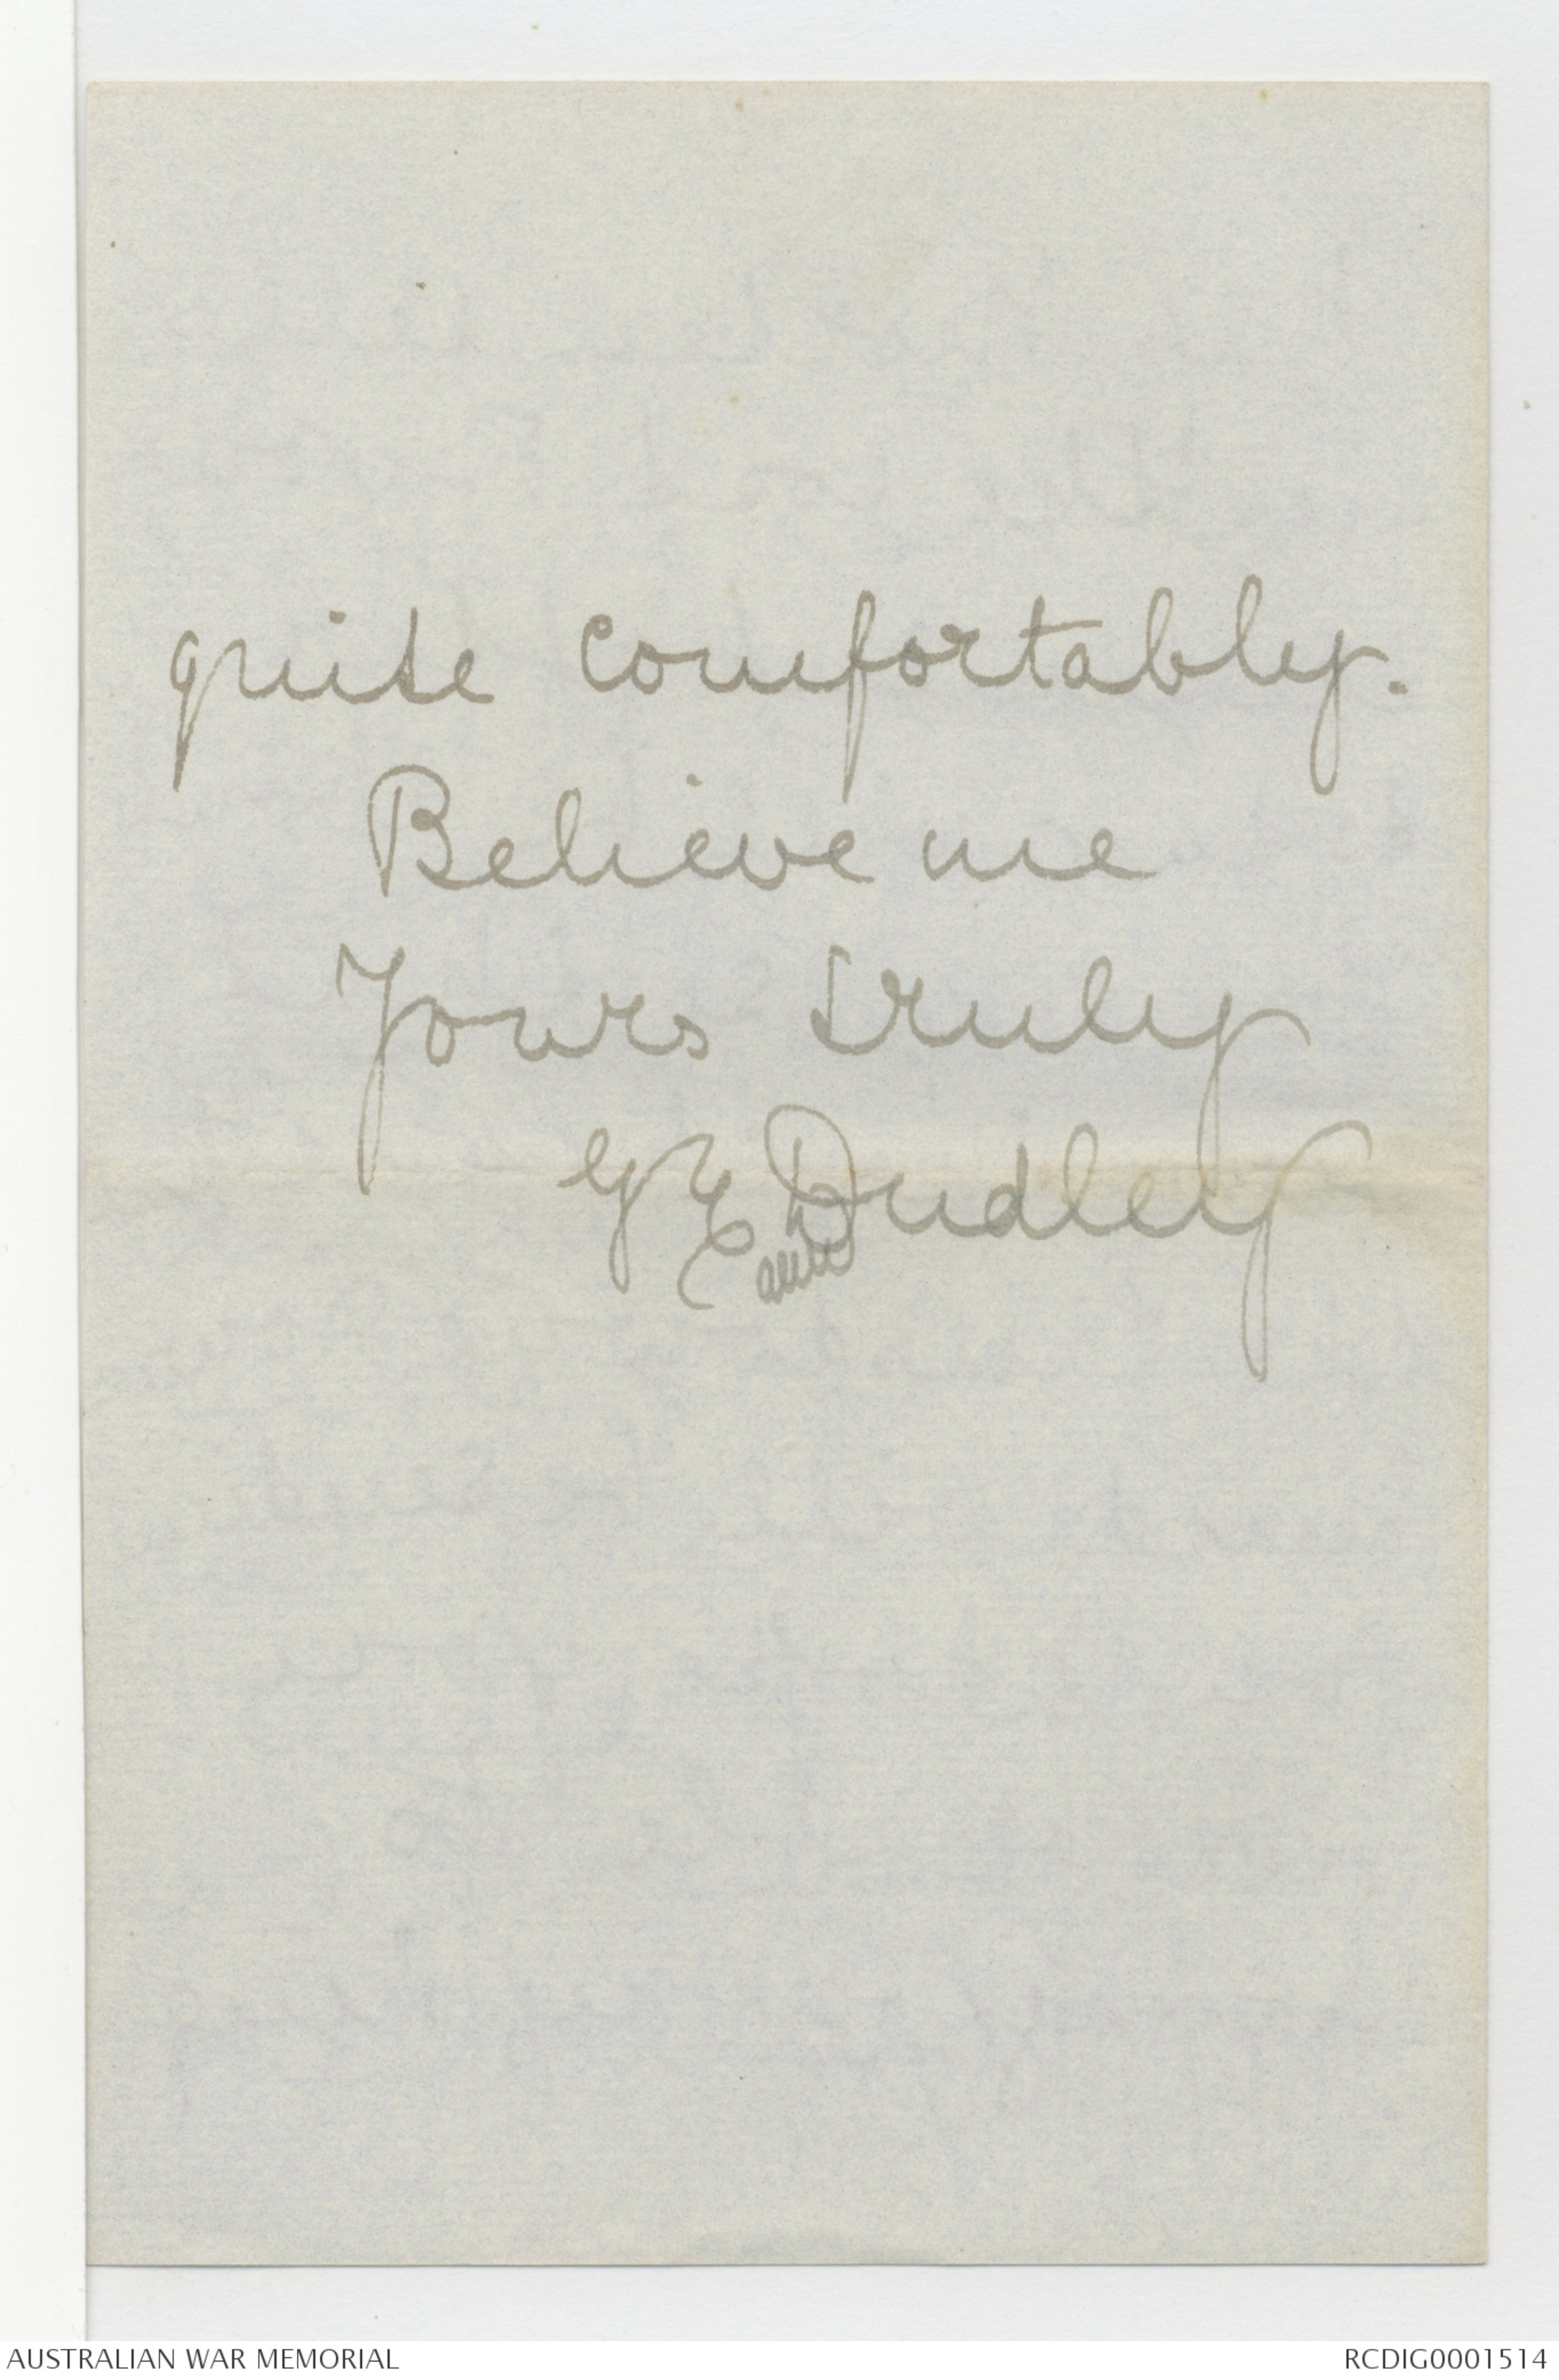 quite comfortably.
Believe me
Yours truly
Dudley
AUSTRALIAN WAR MEMORIAL
RCDIG0001514